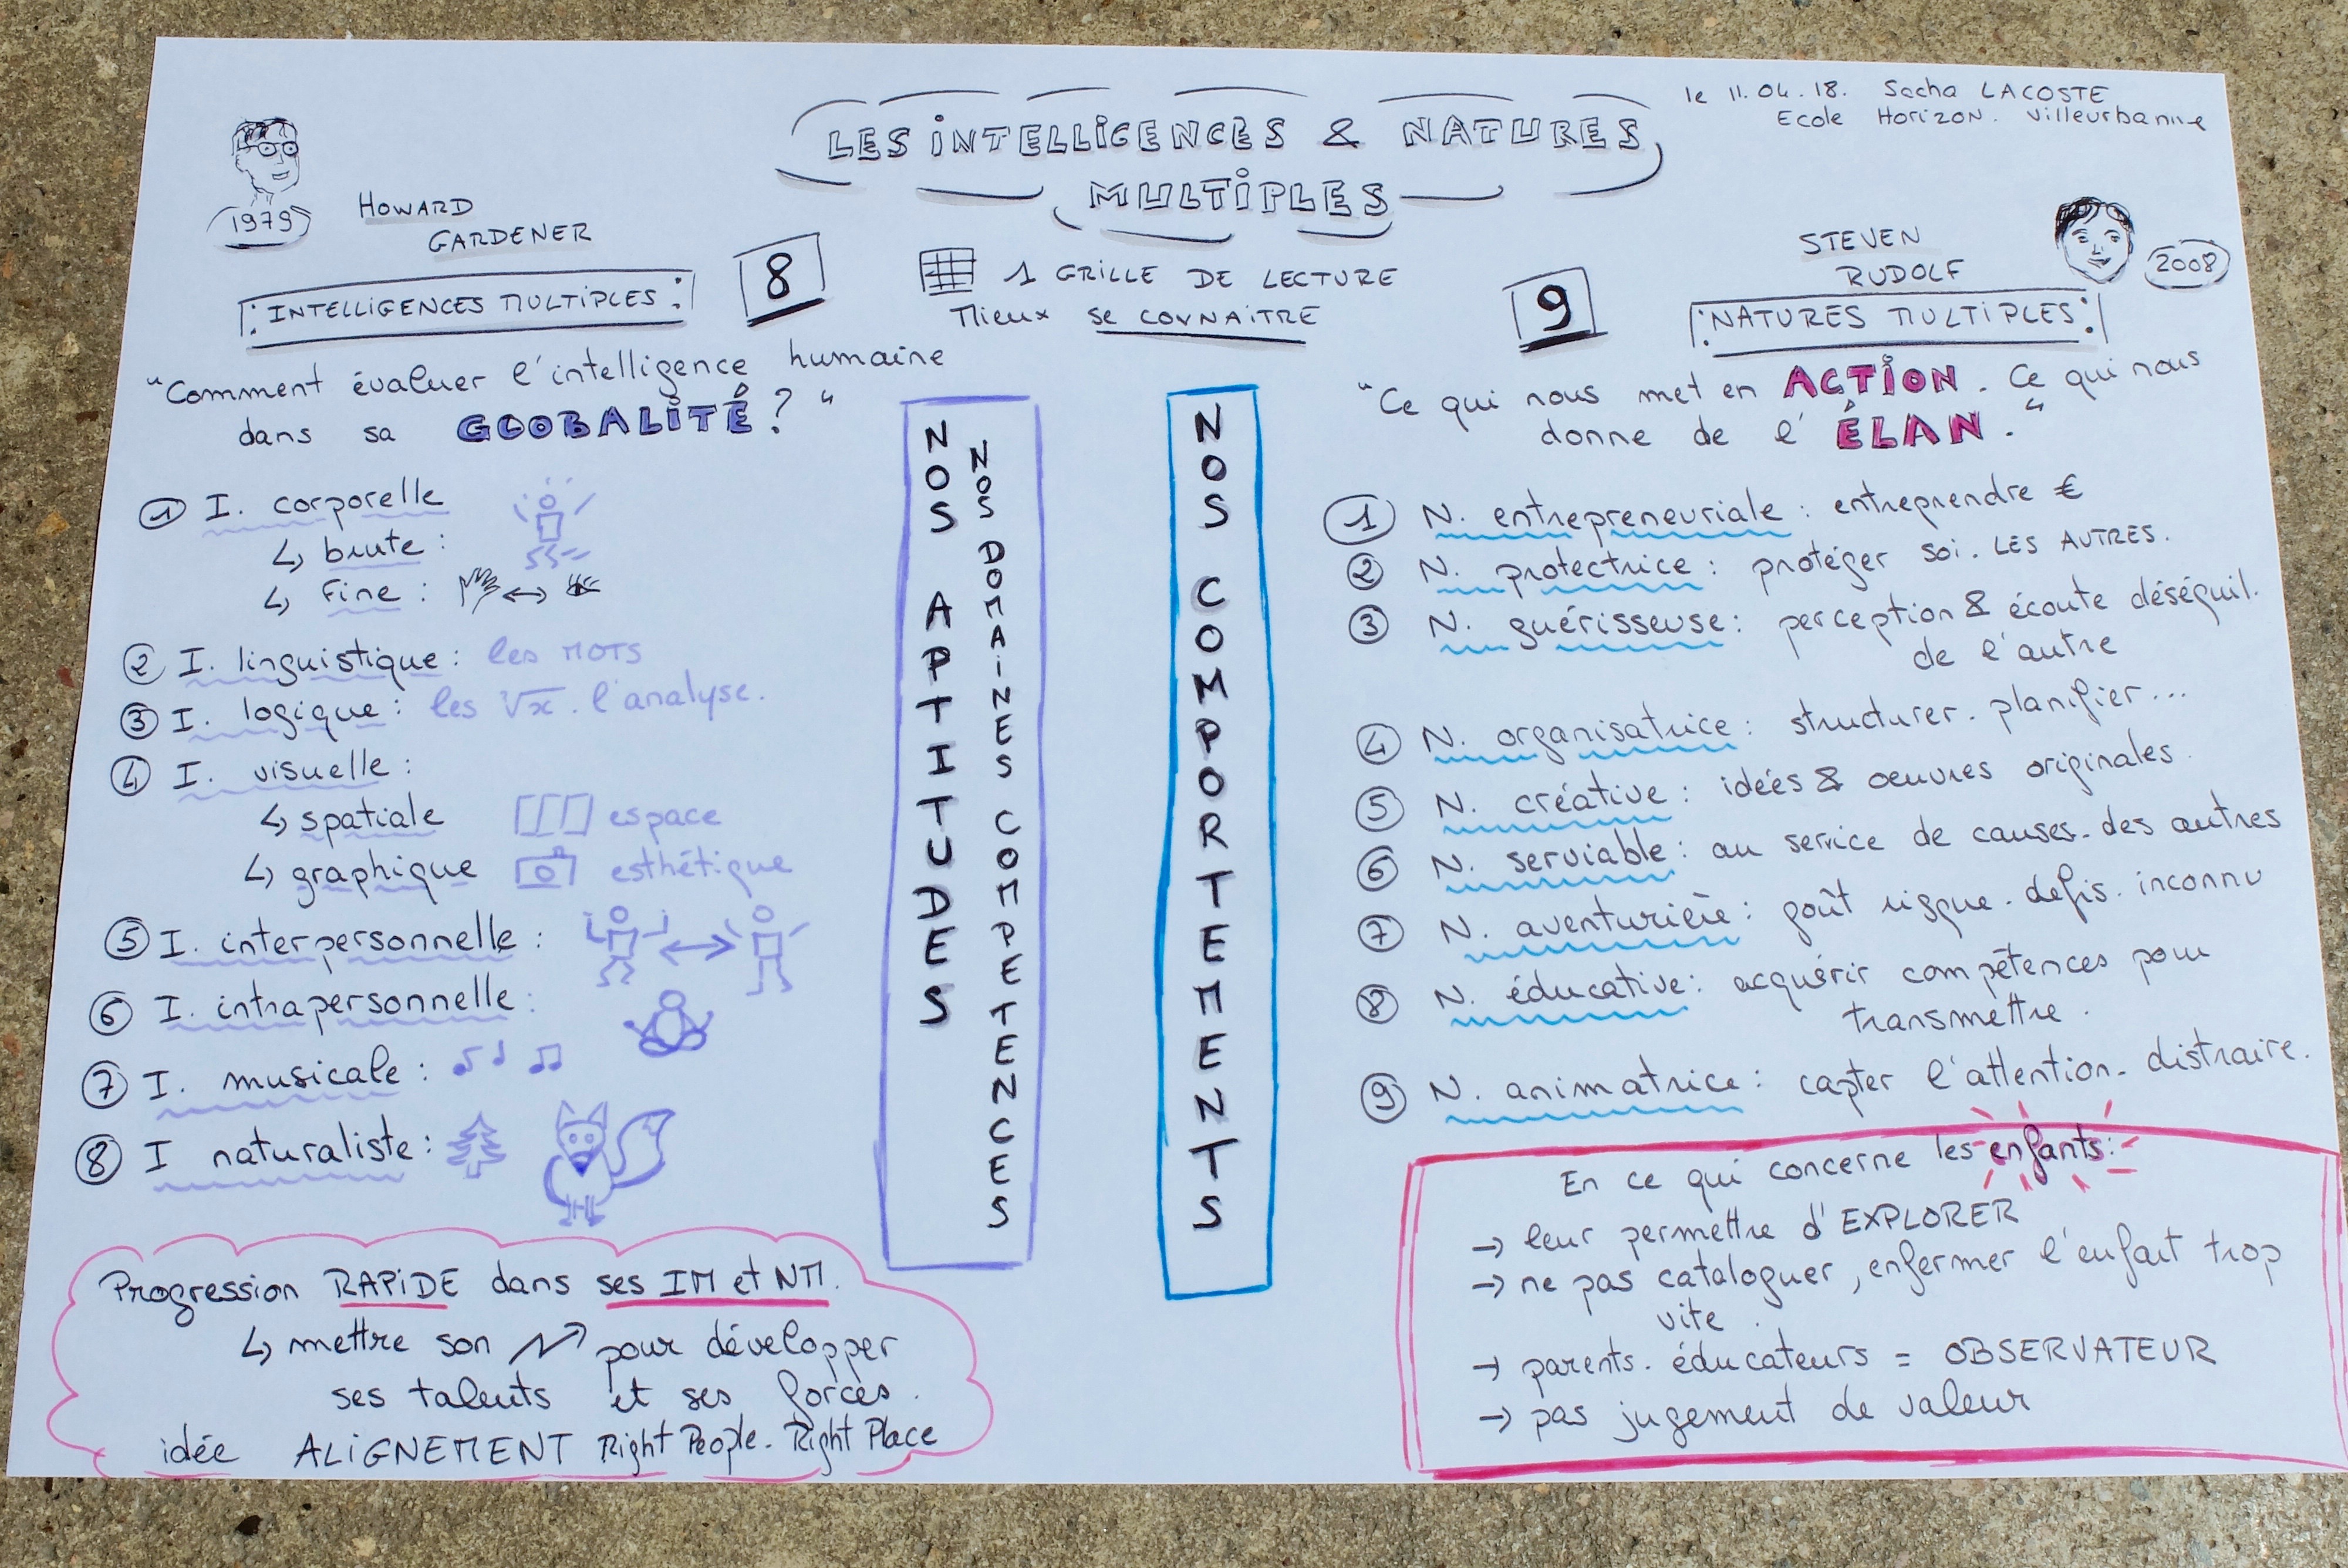 le 11.04.18. Sacha LACOSTE
Ecole Horizon. Villeurbanne
LES INTELLIGENCES & NATURES
MULTIPLES
1 GRILLE DE LECTURE
Mieux se CONNAITRE
1979
HOWARD
GARDENER
INTELLIGENCES MULTIPLES
8
"Comment évaluer l'intelligence humaine
dans sa GLOBALITÉ ? "
1 I. corporelle
↳ brute :
↳ fine : ↔
2 I. linguistique : les MOTS
3 I. logique : les √x . l'analyse.
4 I. visuelle :
↳ spatiale espace
↳ graphique esthétique
5 I. interpersonnelle :
6 I. intrapersonnelle :
7 I. musicale :
8 I naturaliste :
Progression RAPIDE dans ses IM et NM.
↳ mettre son N↗ pour développer
ses talents et ses forces.
idée ALIGNEMENT Right People. Right Place
NOS APTITUDES
NOS DOMAINES COMPETENCES
NOS COMPORTEMENTS
9
STEVEN
RUDOLF
2008
NATURES MULTIPLES
"Ce qui nous met en ACTION. Ce qui nous
donne de l'ÉLAN."
1 N. entrepreneuriale : entreprendre €
2 N. protectrice : protéger soi. LES AUTRES.
3 N. guérisseuse : perception & écoute déséquil.
de l'autre
4 N. organisatrice : structurer. planifier...
5 N. créative : idées & oeuvres originales.
6 N. serviable : au service de causes. des autres
7 N. aventurière : goût risque. défis. inconnu
8 N. éducative : acquérir compétences pour
transmettre.
9 N. animatrice : capter l'attention. distraire.
En ce qui concerne les enfants :
→ leur permettre d'EXPLORER
→ ne pas cataloguer, enfermer l'enfant trop
vite.
→ parents. éducateurs = OBSERVATEUR
→ pas jugement de valeur